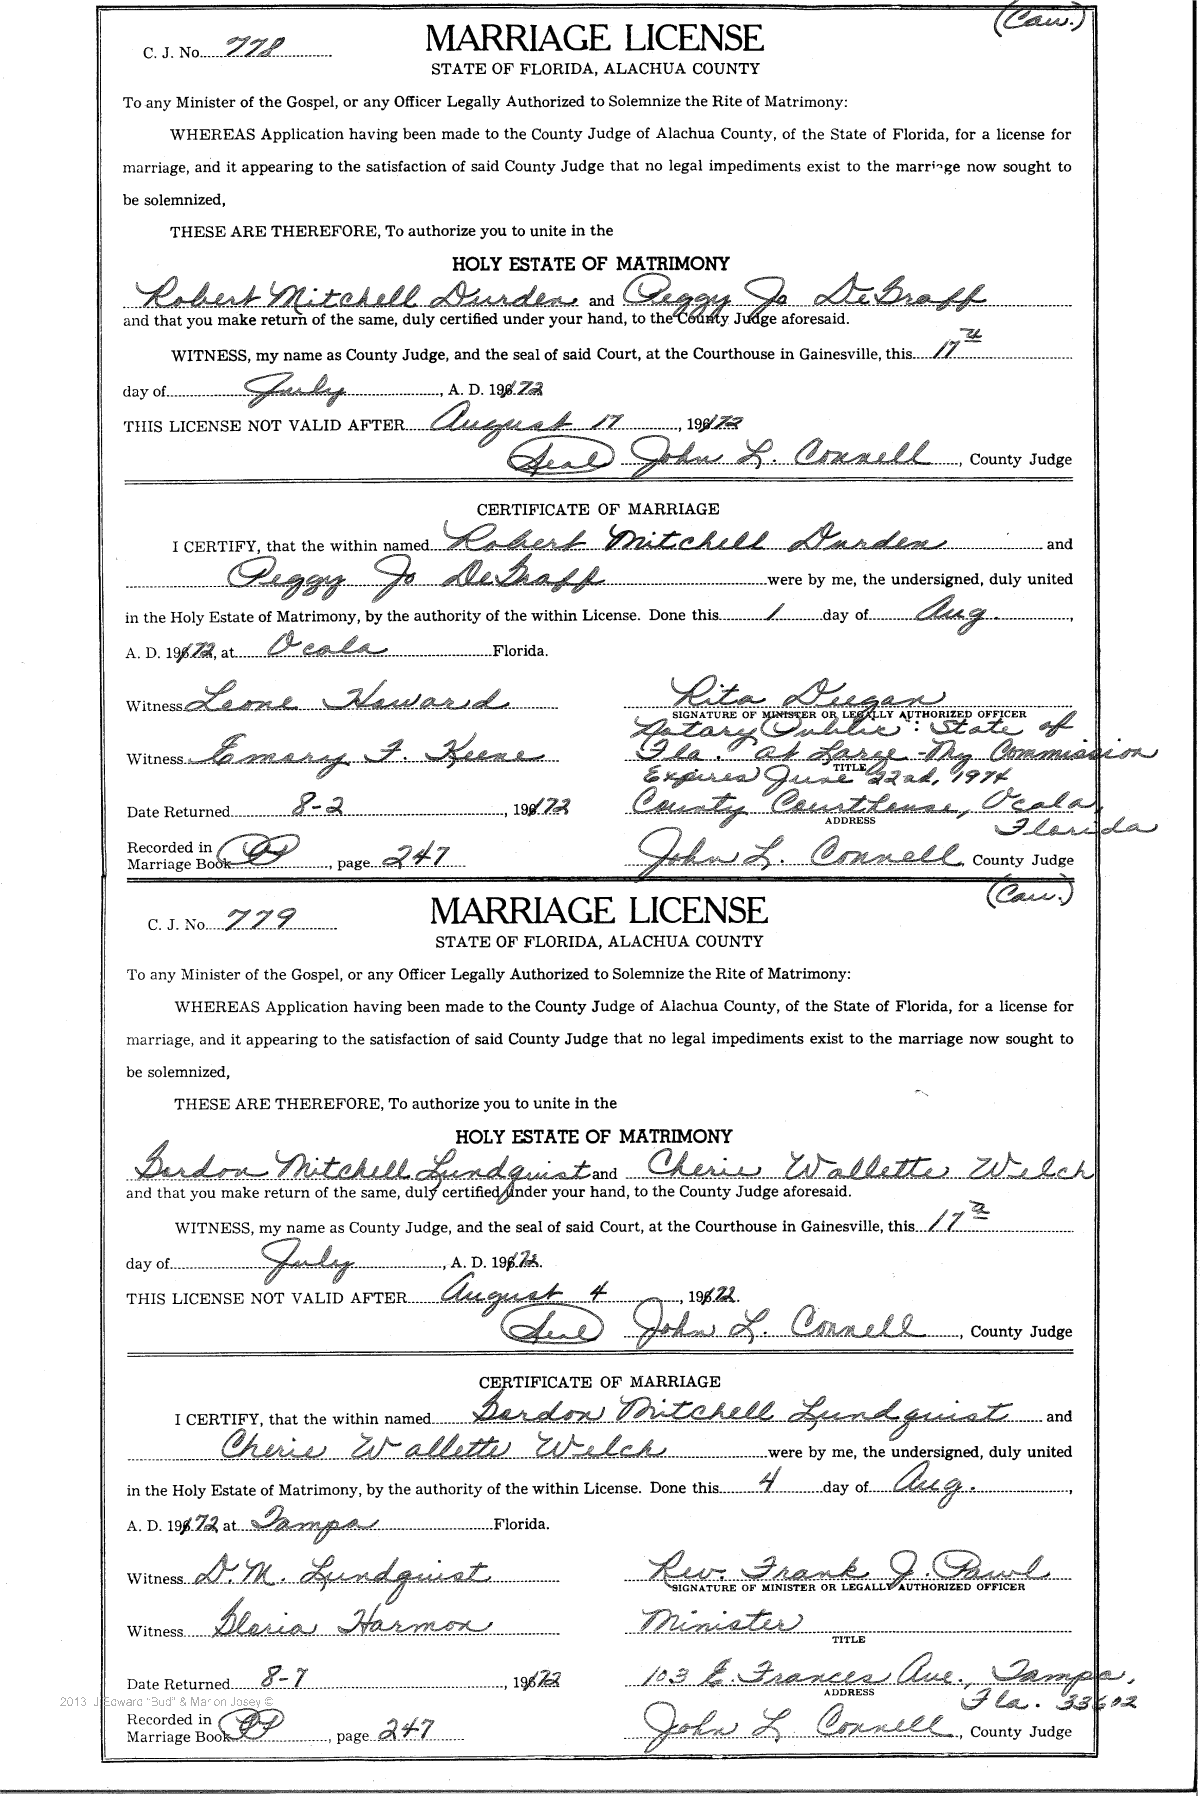 (Cau.)
C. J. No. 778
MARRIAGE LICENSE
STATE OF FLORIDA, ALACHUA COUNTY
To any Minister of the Gospel, or any Officer Legally Authorized to Solemnize the Rite of Matrimony:
WHEREAS Application having been made to the County Judge of Alachua County, of the State of Florida, for a license for
marriage, and it appearing to the satisfaction of said County Judge that no legal impediments exist to the marriage now sought to
be solemnized,
THESE ARE THEREFORE, To authorize you to unite in the
HOLY ESTATE OF MATRIMONY
Robert Mitchell Durden and Peggy Jo DeGraff
and that you make return of the same, duly certified under your hand, to the County Judge aforesaid.
WITNESS, my name as County Judge, and the seal of said Court, at the Courthouse in Gainesville, this 17th
day of July, A. D. 1972
THIS LICENSE NOT VALID AFTER August 17, 1972
(Seal) John L. Connell, County Judge
CERTIFICATE OF MARRIAGE
I CERTIFY, that the within named Robert Mitchell Durden and
Peggy Jo DeGraff were by me, the undersigned, duly united
in the Holy Estate of Matrimony, by the authority of the within License. Done this 1 day of Aug.,
A. D. 1972, at Ocala Florida.
Witness Leone Howard Rita Deegan
SIGNATURE OF MINISTER OR LEGALLY AUTHORIZED OFFICER
Notary Public: State of
Witness Emary F. Keene Fla. at Large - My Commission
TITLE
Expires June 22nd, 1974
Date Returned 8-2, 1972 County Courthouse, Ocala,
ADDRESS
Florida
Recorded in
Marriage Book, page 247 John L. Connell, County Judge
(Cau.)
C. J. No. 779
MARRIAGE LICENSE
STATE OF FLORIDA, ALACHUA COUNTY
To any Minister of the Gospel, or any Officer Legally Authorized to Solemnize the Rite of Matrimony:
WHEREAS Application having been made to the County Judge of Alachua County, of the State of Florida, for a license for
marriage, and it appearing to the satisfaction of said County Judge that no legal impediments exist to the marriage now sought to
be solemnized,
THESE ARE THEREFORE, To authorize you to unite in the
HOLY ESTATE OF MATRIMONY
Gordon Mitchell Lundquist and Cherie Wallette Welch
and that you make return of the same, duly certified under your hand, to the County Judge aforesaid.
WITNESS, my name as County Judge, and the seal of said Court, at the Courthouse in Gainesville, this 17th
day of July, A. D. 1972.
THIS LICENSE NOT VALID AFTER August 4, 1972.
(Seal) John L. Connell, County Judge
CERTIFICATE OF MARRIAGE
I CERTIFY, that the within named Gordon Mitchell Lundquist and
Cherie Wallette Welch were by me, the undersigned, duly united
in the Holy Estate of Matrimony, by the authority of the within License. Done this 4 day of Aug.,
A. D. 1972 at Tampa Florida.
Witness D. M. Lundquist Rev. Frank J. Pawl
SIGNATURE OF MINISTER OR LEGALLY AUTHORIZED OFFICER
Witness Gloria Harmon Minister
TITLE
Date Returned 8-7, 1972 103 E. Frances Ave., Tampa,
ADDRESS
Fla. 33602
2013 J Edward "Bud" & Marion Josey ©
Recorded in
Marriage Book, page 247 John L. Connell, County Judge